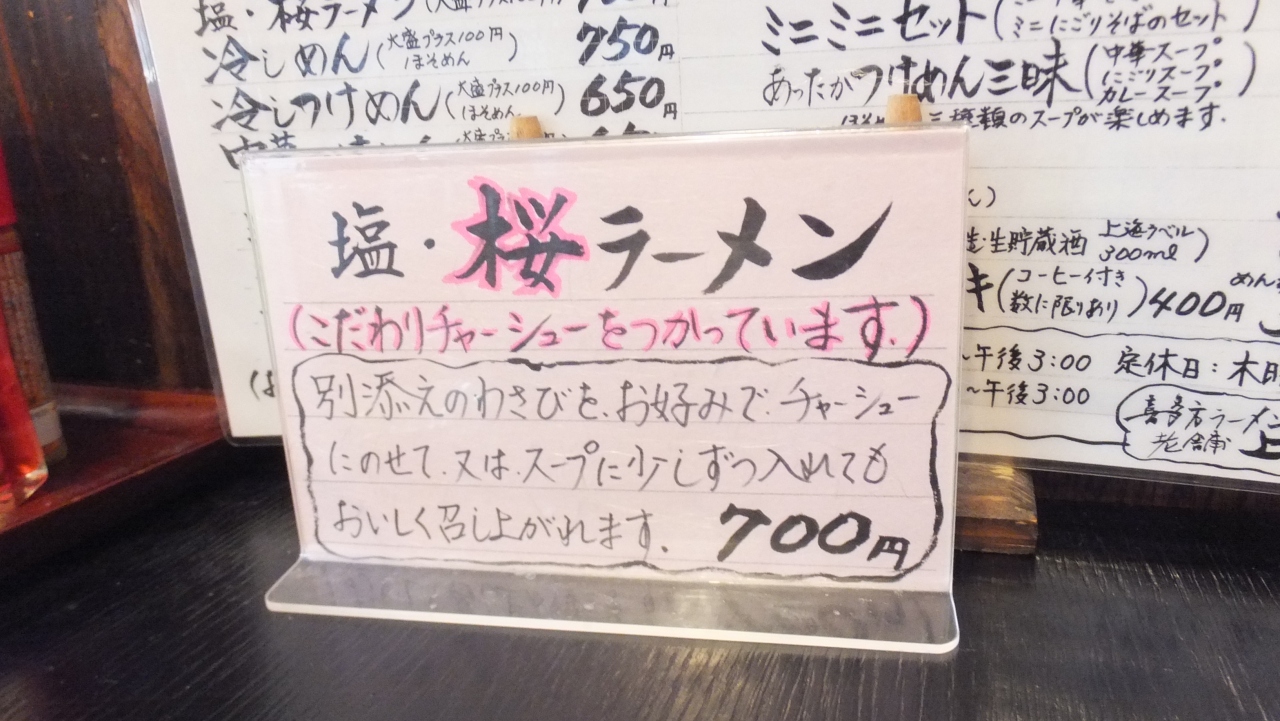 塩・桜ラーメン
冷しめん(大盛プラス100円 ほそめん) 750円
冷しつけめん(大盛プラス100円 ほそめん) 650円
ミニミニセット(ミニにごりそばのセット)
あったかつけめん三昧(中華スープ にごりスープ カレースープ)
三種類のスープが楽しめます.
塩・桜ラーメン
(こだわりチャーシューをつかっています.)
別添えのわさびを、お好みで、チャーシュー
にのせて、又は、スープに少しずつ入れても
おいしく召し上がれます. 700円
生貯蔵酒 上海ラベル 300ml)
キ(コーヒー付き 数に限りあり)400円
午後3:00 定休日:木
午後3:00
喜多方ラーメン
老舗